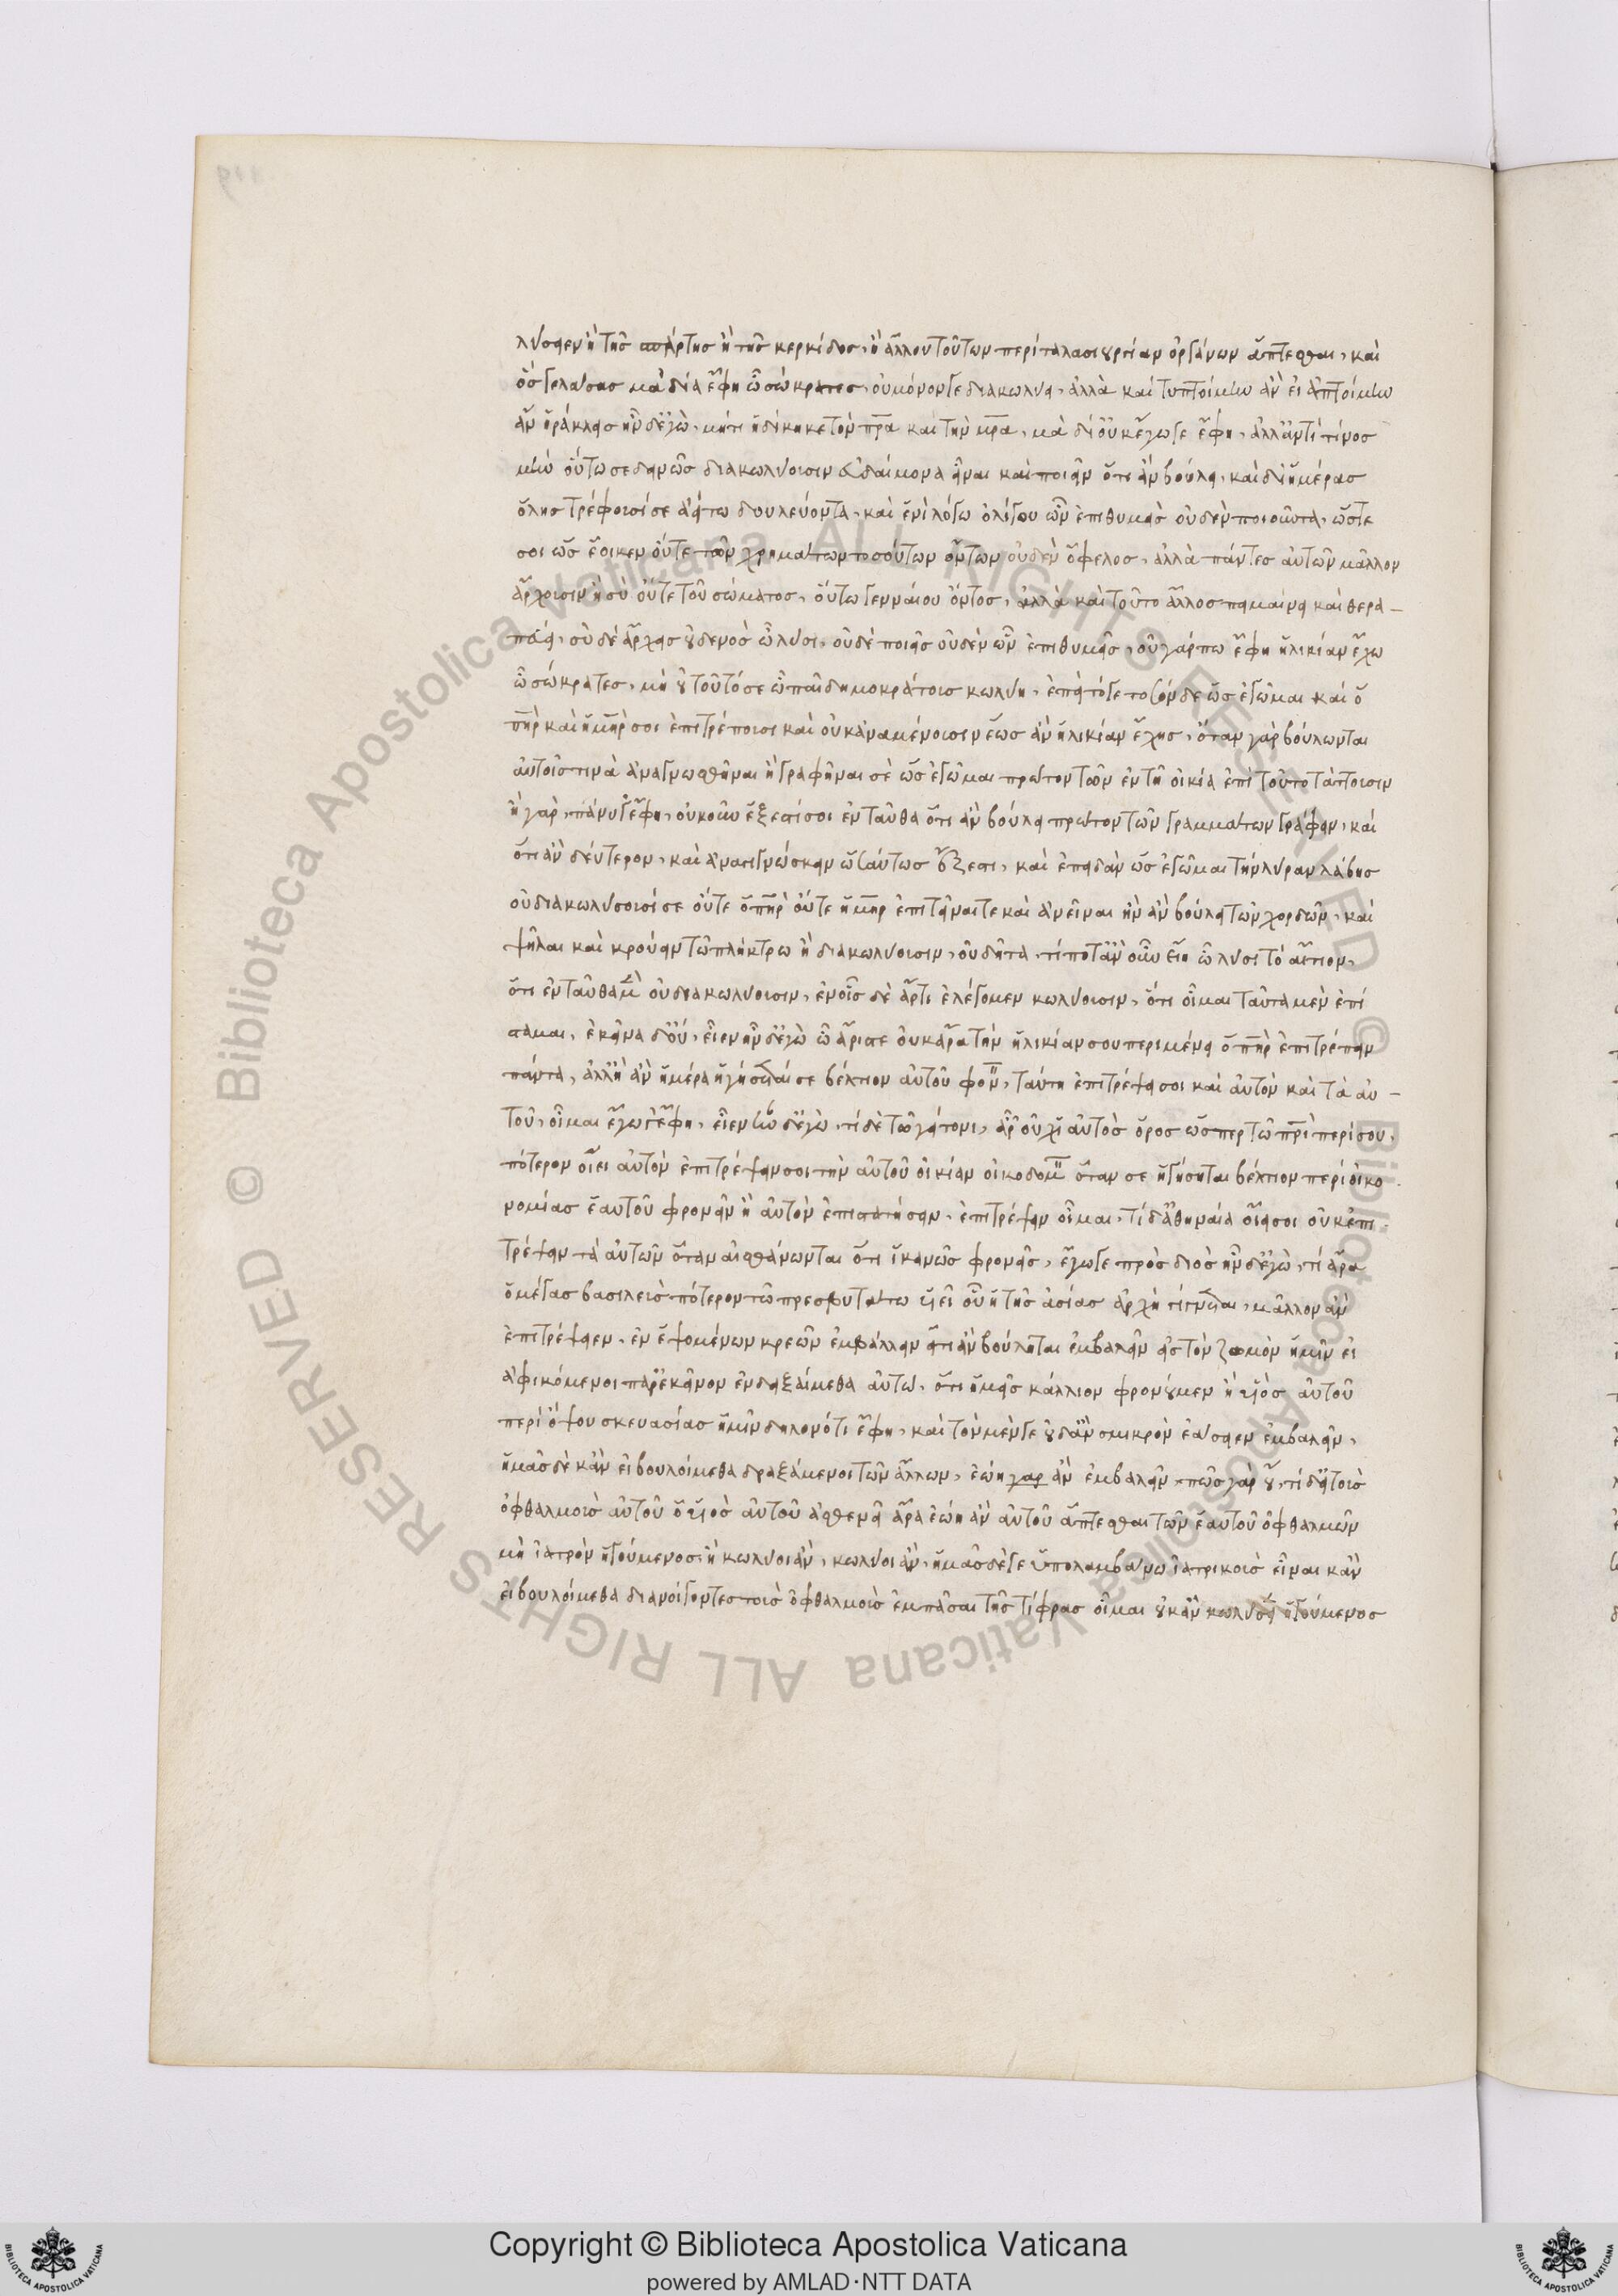 λύσειεν ἢ τῆς σπάρτης ἢ τῆς κερκίδος, ἢ ἄλλου τοῦτων περὶ ταλασιουργίαν ὀργάνων ἅπτεσθαι, καὶ
ὃς γελάσας μὰ δία ἔφη ὦ σώκρατες, οὐ μόνον γε διακωλύει, ἀλλὰ καὶ τυπτοίμην ἂν εἰ ἁπτοίμην
ἂν ἡράκλεις ἦν δ' ἐγὼ, μήτι ἠδίκηκε τὸν πρα καὶ τὴν μρα, μὰ δι' οὐκ ἔγωγε ἔφη, ἀλλ' ἀντὶ τίνος
μὴν οὕτω σε δεινῶς διακωλύουσιν εὐδαίμονα εἶναι καὶ ποιεῖν ὅτι ἂν βούλει, καὶ δι' ἡμέρας
ὅλης τρέφουσί σε ἀεί τω δουλεύοντα, καὶ ἑνὶ λόγω ὀλίγου ὧν ἐπιθυμεῖς οὐδὲν ποιοῦντα, ὥστε
σοι ὡς ἔοικεν οὔτε τῶν χρημάτων τοσούτων ὄντων οὐδὲν ὄφελος, ἀλλὰ πάντες αὐτῶν μᾶλλον
ἄρχουσιν ἢ σὺ οὔτε τοῦ σώματος, οὕτω γενναίου ὄντος, ἀλλὰ καὶ τοῦτο ἄλλος ποιμαίνει καὶ θερα-
πεύει, σὺ δὲ ἄρχεις οὐδενὸς ὦ λύσι, οὐδὲ ποιεῖς οὐδὲν ὧν ἐπιθυμεῖς, οὐ γάρ πω ἔφη ἡλικίαν ἔχω
ὦ σώκρατες, μὴ οὐ τοῦτό σε ὦ παῖ δημοκράτους κωλύη, ἐπεὶ τό γε τοσόνδε ὡς ἐγῶμαι καὶ ὁ
πηρ καὶ ἡ μηρ σοι ἐπιτρέπουσι καὶ οὐκ ἀναμένουσιν ἕως ἂν ἡλικίαν ἔχης, ὅταν γὰρ βούλωνται
αὑτοῖς τινὰ ἀναγνωσθῆναι ἢ γραφῆναι σὲ ὡς ἐγῶμαι πρῶτον τῶν ἐν τῆ οἰκία ἐπὶ τοῦτο τάττουσιν
ἢ γὰρ, πάνυ γ' ἔφη, οὐκοῦν ἔξεστί σοι ἐνταῦθα ὅτι ἂν βούλει πρῶτον τῶν γραμμάτων γράφειν, καὶ
ὅτι ἂν δεύτερον, καὶ ἀναγιγνώσκειν ὡσαύτως ἔξεστι, καὶ ἐπειδὰν ὡς ἐγῶμαι τὴν λύραν λάβης
οὐ διακωλύουσί σε οὔτε ὁ πηρ οὔτε ἡ μηρ ἐπιτεῖναί τε καὶ ἀνεῖναι ἣν ἂν βούλει τῶν χορδῶν, καὶ
ψῆλαι καὶ κρούειν τῶ πλήκτρω ἢ διακωλύουσιν, οὐ δῆτα, τί ποτ' ἂν οὖν εἴη ὦ λύσι τὸ αἴτιον,
ὅτι ἐνταῦθα μὲν οὐ διακωλύουσιν, ἐν οἷς δὲ ἄρτι ἐλέγομεν κωλύουσιν, ὅτι οἶμαι ταῦτα μὲν ἐπί
σταμαι, ἐκεῖνα δ' οὔ, εἶεν ἦν δ' ἐγὼ ὦ ἄριστε οὐκ ἄρα τὴν ἡλικίαν σου περιμένει ὁ πηρ ἐπιτρέπειν
πάντα, ἀλλ' ἧ ἂν ἡμέρα ἡγήσηταί σε βέλτιον αὑτοῦ φρονεῖν, ταύτη ἐπιτρέψει σοι καὶ αὑτὸν καὶ τὰ αὑ-
τοῦ, οἶμαι ἔγωγ' ἔφη, εἶεν ἦν δ' ἐγὼ, τί δὲ τῶ γείτονι, ἆρ' οὐχ' ὁ αὐτὸς ὅρος ὥσπερ τῶ πρὶ περὶ σου,
πότερον οἴει αὐτὸν ἐπιτρέψειν σοι τὴν αὑτοῦ οἰκίαν οἰκονομεῖν ὅταν σε ἡγήσηται βέλτιον περὶ οἰκο
νομίας ἑαυτοῦ φρονεῖν ἢ αὐτὸν ἐπιστατήσειν, ἐπιτρέψειν οἶμαι, τί δ' ἀθηναία οἴει σοι οὐκ ἐπι
τρέψειν τὰ αὑτῶν ὅταν αἰσθάνωνται ὅτι ἱκανῶς φρονεῖς, ἔγωγε πρὸς διὸς ἦν δ' ἐγὼ, τί ἄρα
ὁ μέγας βασιλεὺς πότερον τῶ πρεσβυτάτω υἱεῖ οὗ ἡ τῆς ἀσίας ἀρχὴ γίγνεται, μᾶλλον ἂν
ἐπιτρέψειεν, ἐν ἑψομένων κρεῶν ἐμβάλλειν ὅτι ἂν βούληται ἐμβαλεῖν εἰς τὸν ζωμὸν ἡμῖν εἰ
ἀφικόμενοι παρ' ἐκεῖνον ἐνδειξαίμεθα αὐτῶ, ὅτι ἡμεῖς κάλλιον φρονοῦμεν ἢ υἱὸς αὐτοῦ
περὶ ὄψου σκευασίας ἡμῖν δηλονότι ἔφη, καὶ τὸν μέν γε οὐδ' ἂν σμικρὸν ἐάσειεν ἐμβαλεῖν,
ἡμᾶς δὲ κἂν εἰ βουλοίμεθα δραξάμενοι τῶν ἄλλων, ἐώη γαρ ἂν ἐμβαλεῖν, πῶς γὰρ οὔ, τί δ' εἰ τοὺς
ὀφθαλμοὺς αὐτοῦ ὁ υἱὸς αὐτοῦ ἀσθενεῖ ἆρα ἐώη ἂν αὐτοῦ ἅπτεσθαι τῶν ἑαυτοῦ ὀφθαλμῶν
μὴ ἰατρὸν ἡγούμενος, ἢ κωλύοι ἂν, κωλύοι ἂν, ἡμᾶς δέ γε ὑπολαμβάνων ἰατρικοὺς εἶναι κἂν
εἰ βουλοίμεθα διανοίγοντες τοὺς ὀφθαλμοὺς ἐμπᾶσαι τῆς τέφρας οἶμαι οὐκ ἂν κωλύσειεν ἡγούμενος
Copyright © Biblioteca Apostolica Vaticana
powered by AMLAD·NTT DATA